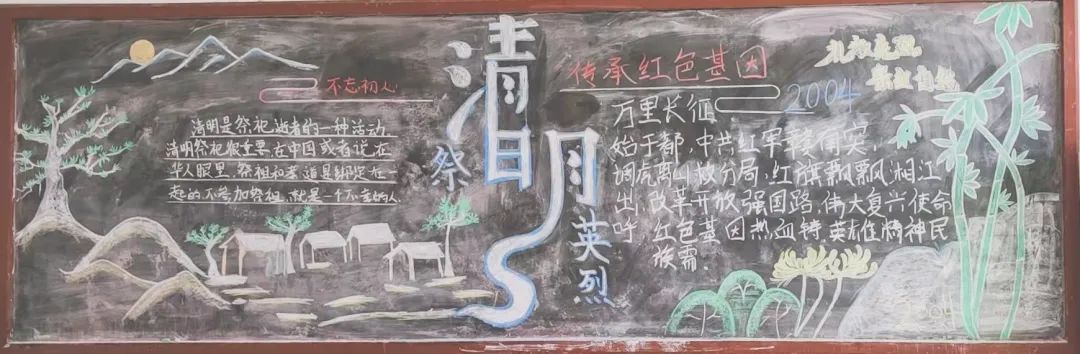 不忘初心
清明是祭祀逝者的一种活动
清明祭祀很重要在中国或者说在
华人眼里,祭祖和孝道是绑定在
起的不参加祭祖,就是一个不孝的人
清明
祭英烈
传承红色基因
万里长征
2004
始于都,中共红军赣南突,
调虎离山救分局,红旗飘飘湘江
出,改革开放强国路,伟大复兴使命
呼,红色基因热血铸英雄精神民
族需.